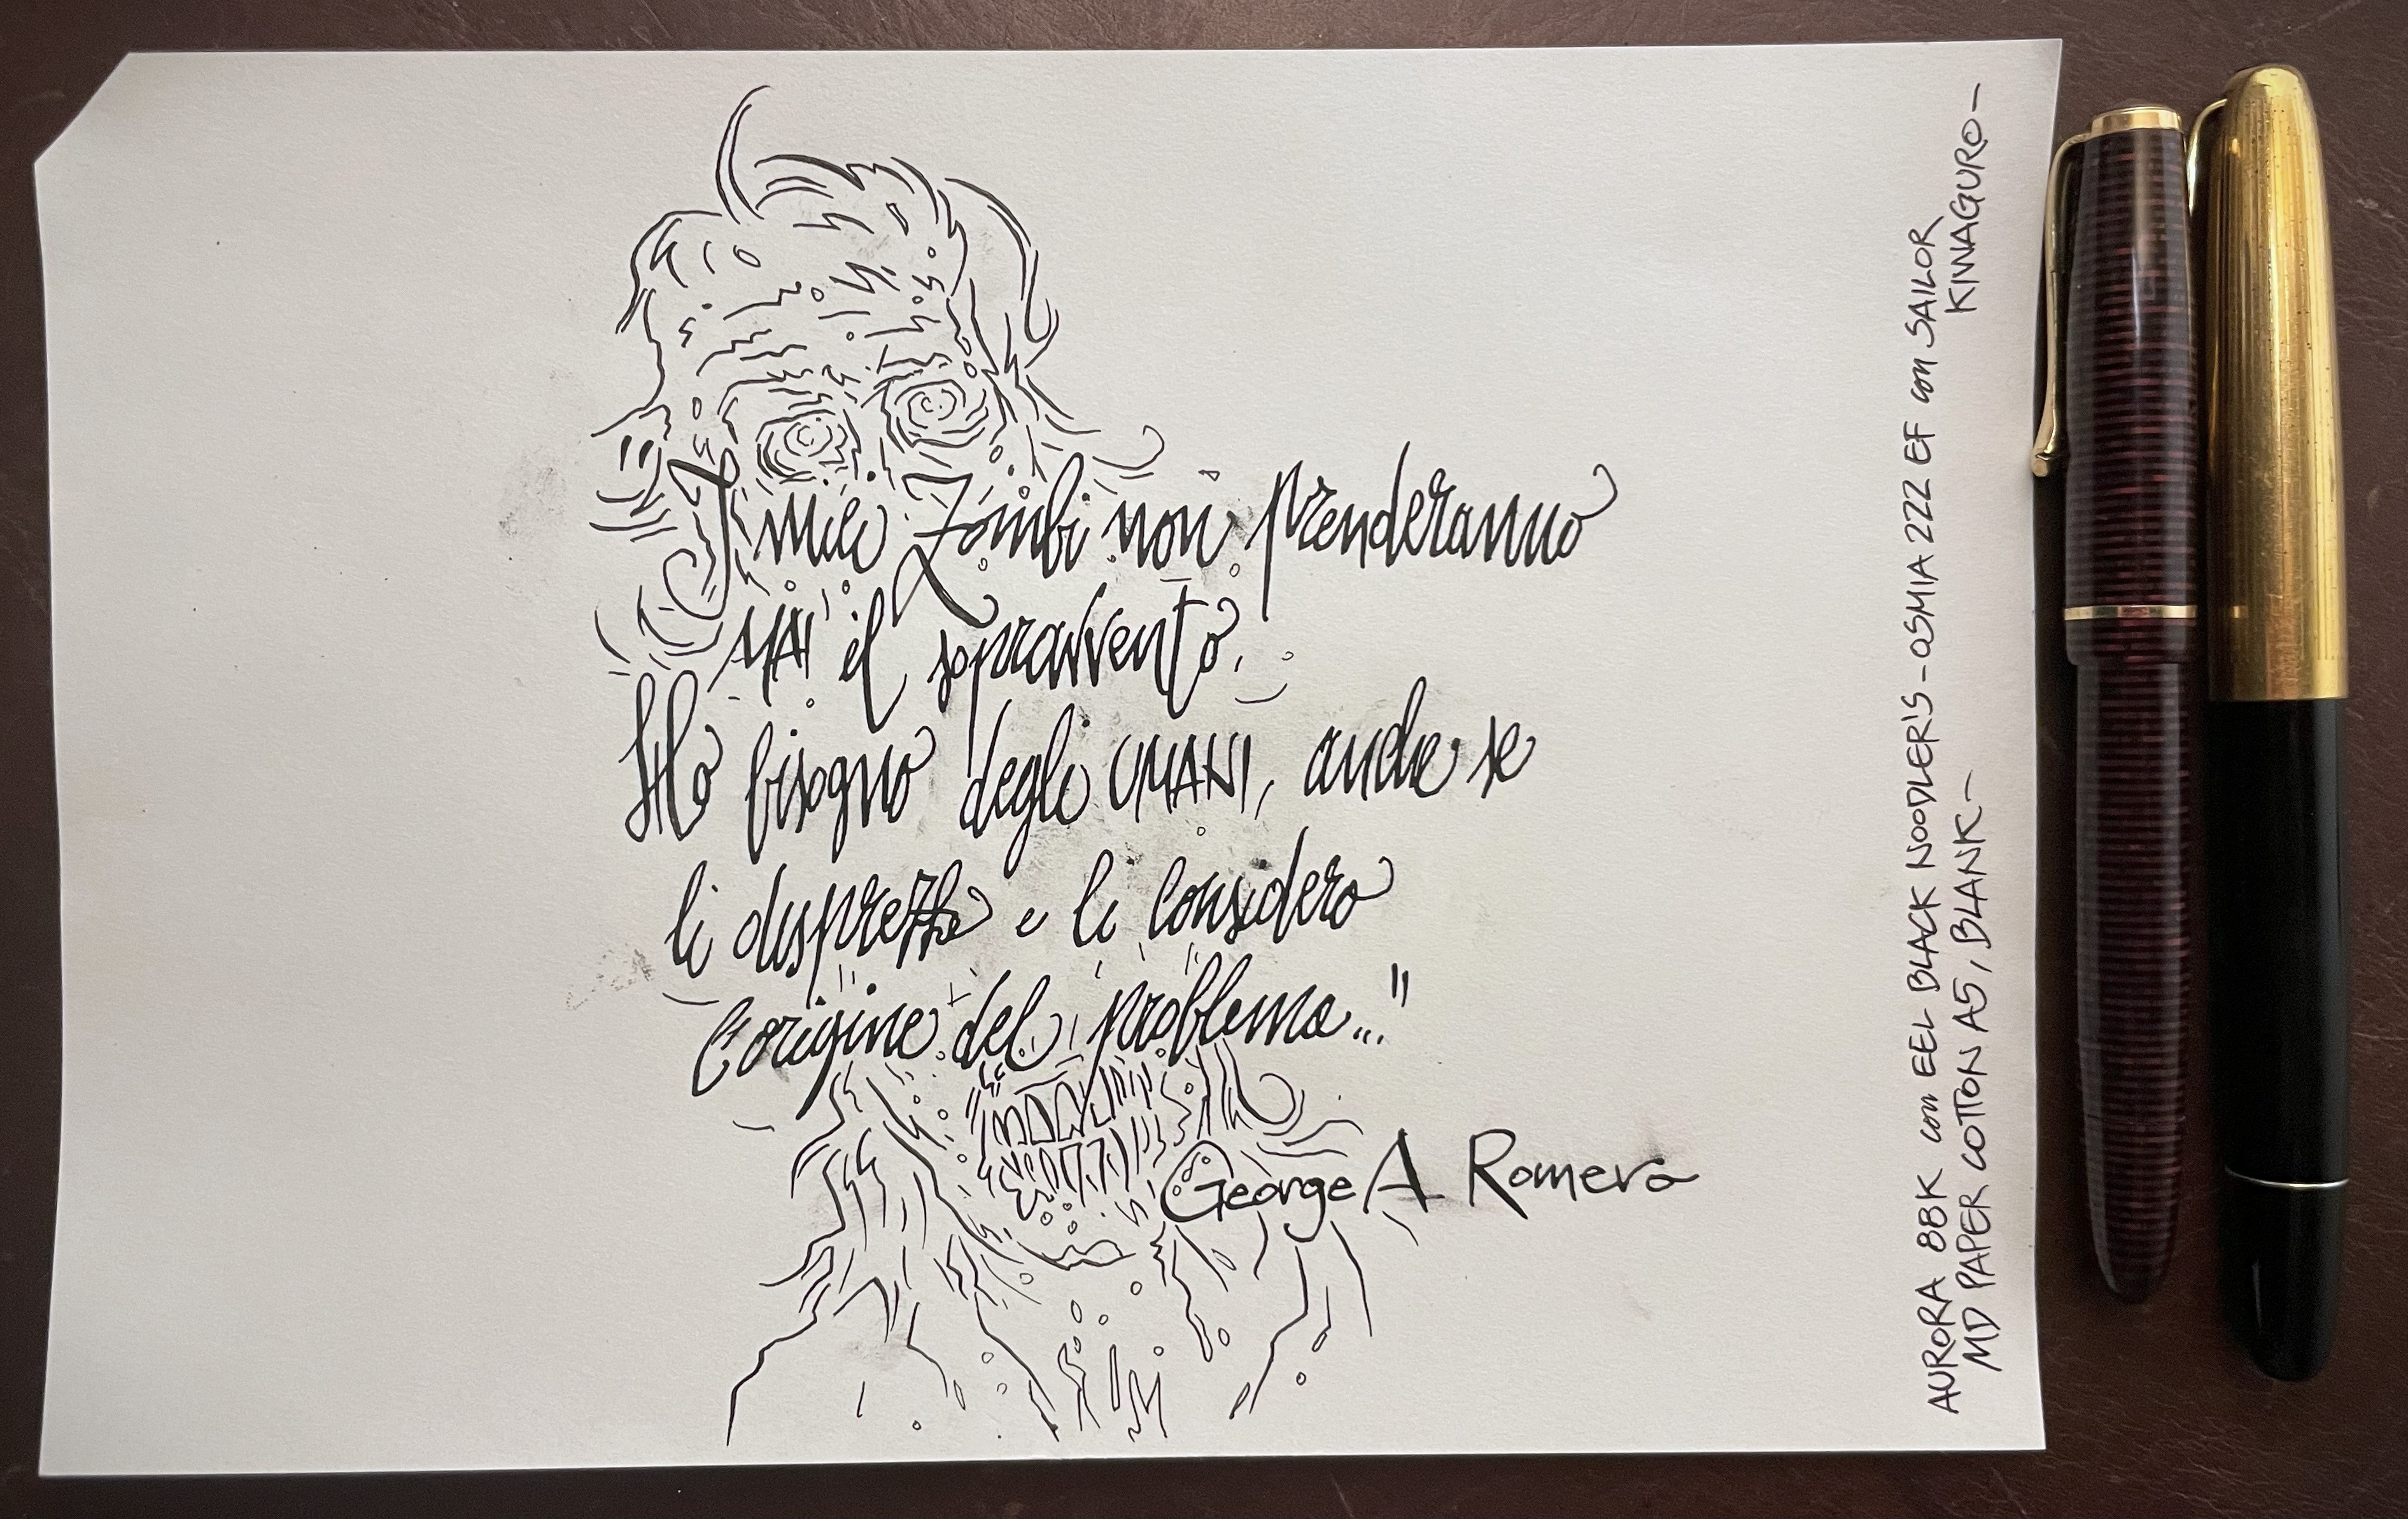 "I miei Zombi non prenderanno
MAI il sopravvento.
Ho bisogno degli UMANI, anche se
li disprezzo e li considero
l'origine del problema..."
George A Romero
AURORA 88K con EEL BLACK NOODLER'S - OSMIA 222 EF con SAILOR
KIWAGURO -
MD PAPER COTTON A5, BLANK -